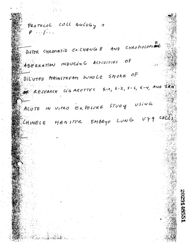 PROTOCOL CELL BIOLOGY
P
SISTER CHROMATID EXCHANGE AND CHROMOSOME
ABERRATION INDUCING ACTIVITIES OF
DILUTED MAINSTREAM WHOLE SMOKE OF
RESEARCH CIGARETTES
ACUTE IN VITRO EXPOSURE STUDY USING
CHINESE HAMSTER EMBRYO LUNG V79 CELLS